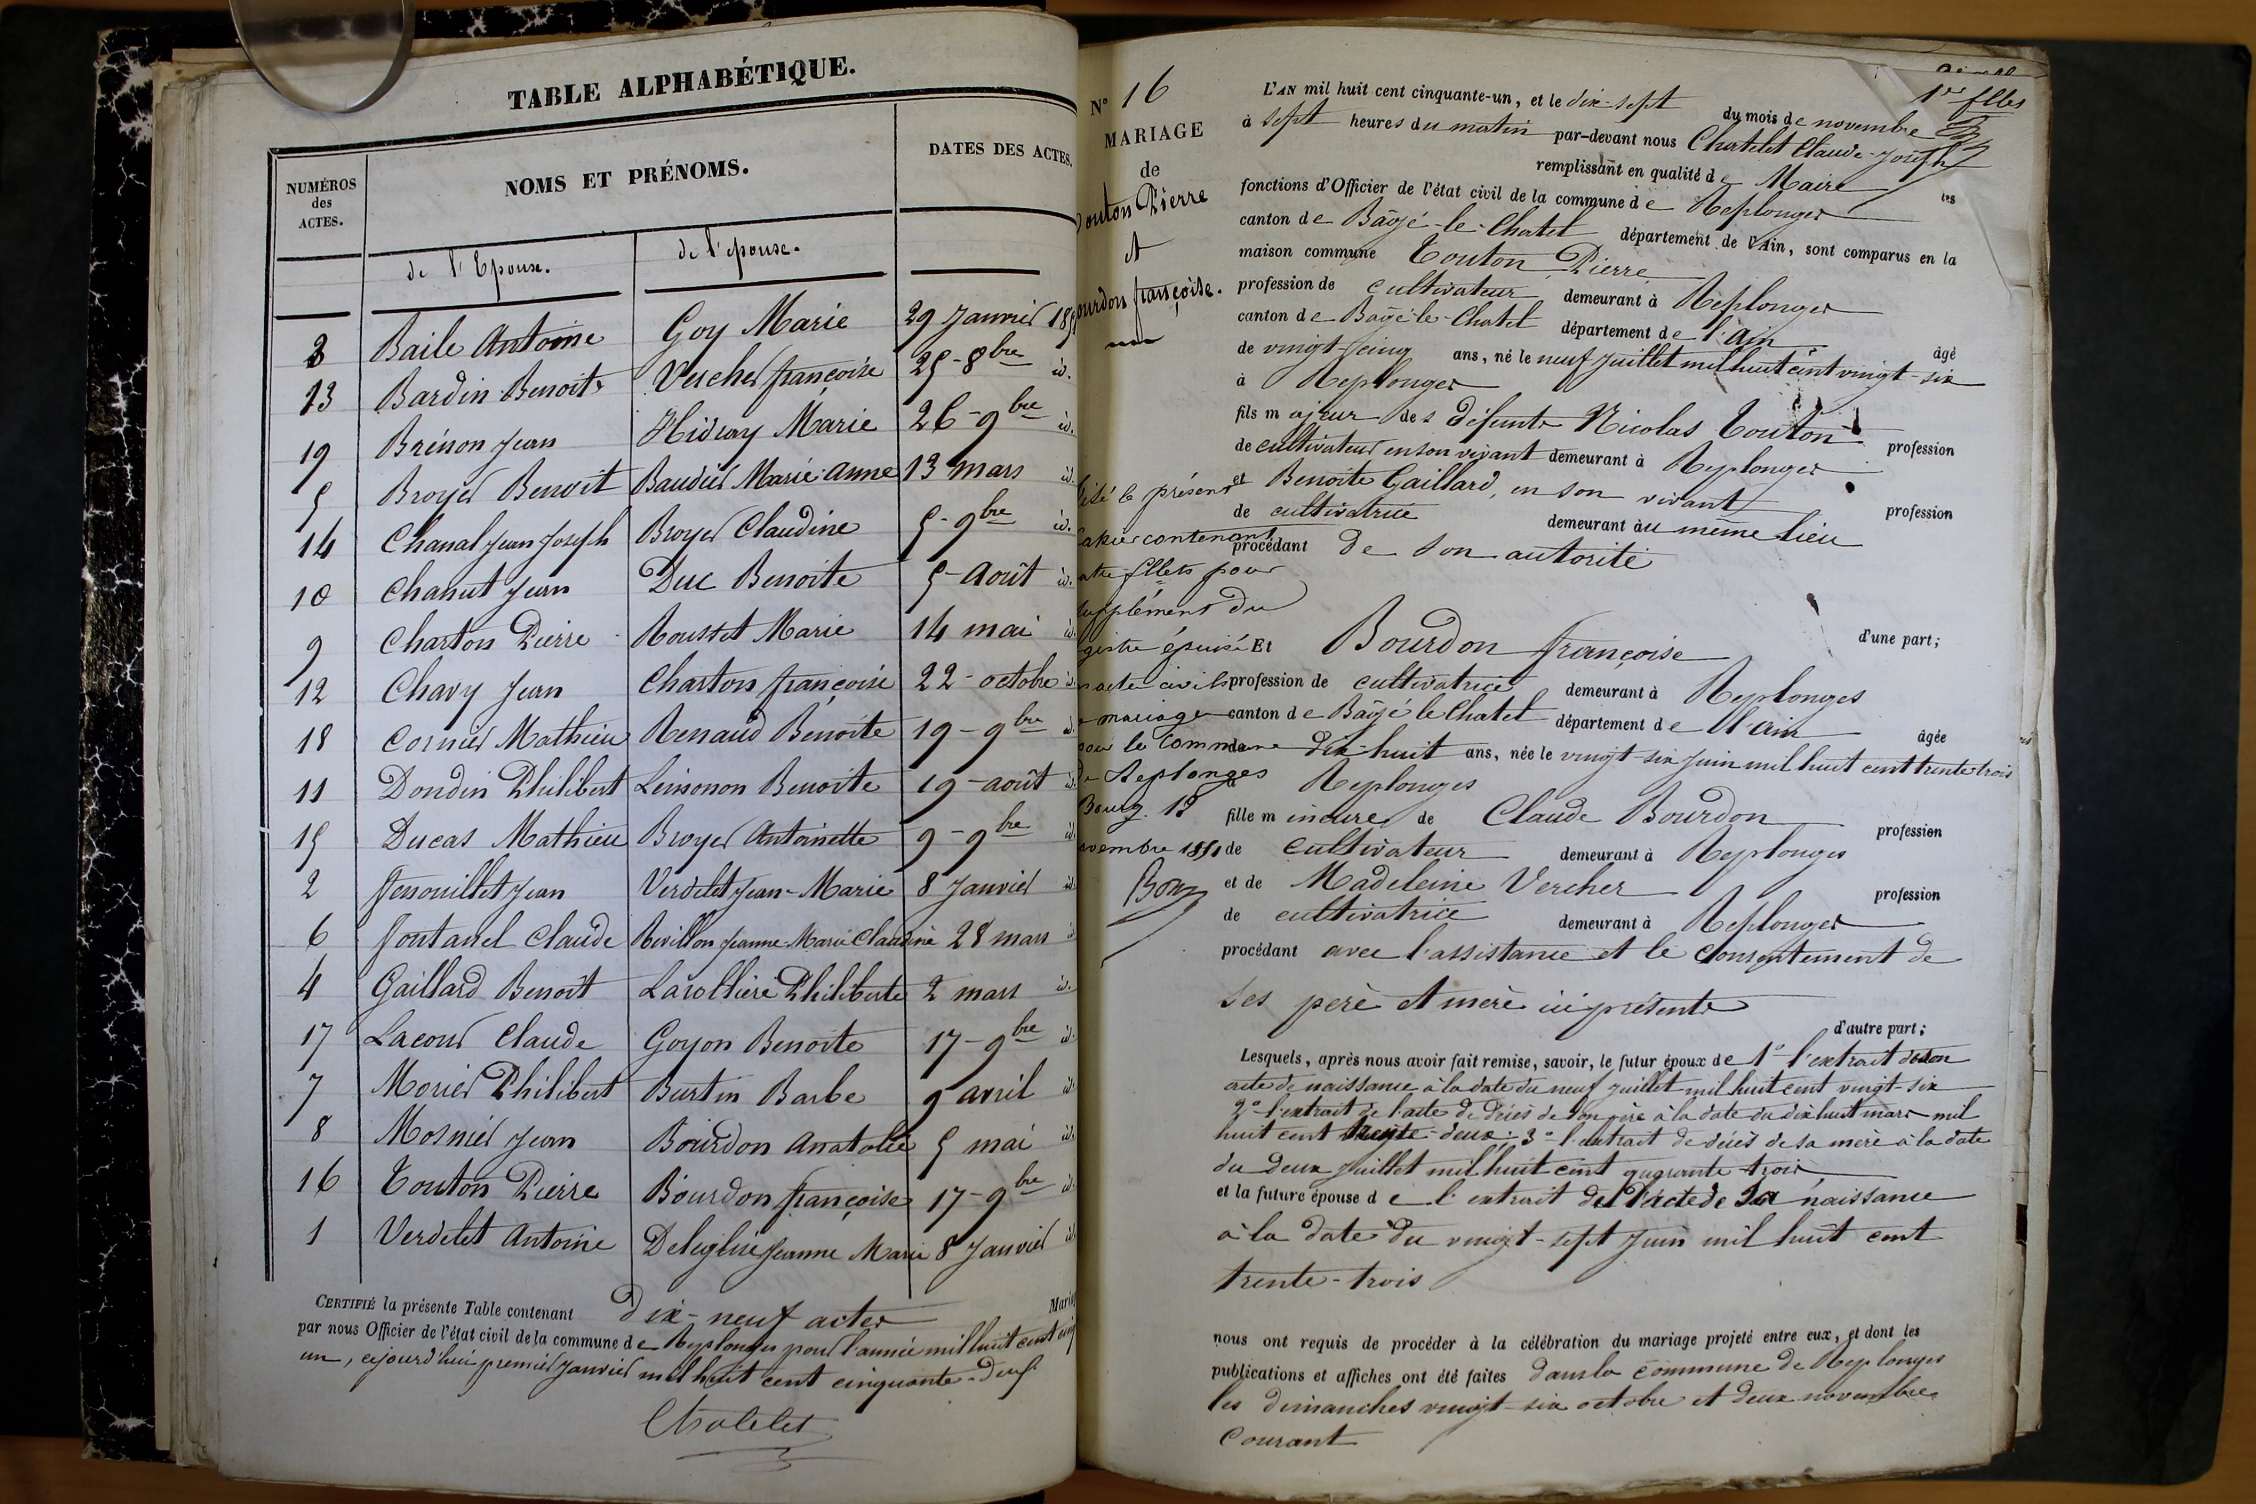 TABLE ALPHABÉTIQUE.
NUMÉROS des ACTES.
NOMS ET PRÉNOMS.
DATES DES ACTES.
de l'Epoux.
de l'epouse.
3 Baile Antoine Goy Marie 29 Janvier 185
13 Bardin Benoit Vercher françoise 25-8bre id.
19 Brénon Jean Hidray Marie 26-9bre id.
5 Broyer Benoit Baudier Marie Anne 13 mars id.
14 Chanal Jean Joseph Broyer Claudine 5-9bre id.
10 Chanut Jean Duc Benoite 5-Août id.
9 Charton Pierre Rousset Marie 14 mai id.
12 Chavy Jean Charton françoise 22-octobre id.
18 Cornier Mathieu Renaud Benoite 19-9bre id.
11 Dondin Philibert Leinonon Benoite 19-août id.
15 Ducas Mathieu Broyer Antoinette 9-9bre id.
2 fenouillet Jean Verdelet Jean-Marie 8 Janvier id.
6 fontanel Claude Revillon Jeanne Marie Claudine 28 mars id.
4 Gaillard Benoît Larolliere Philiberte 2 mars id.
17 Lacour Claude Goyon Benoite 17-9bre id.
7 Morier Philibert Burtin Barbe 9 avril id.
8 Mosnier Jean Bourdon Anatolie 5 mai id.
16 Touton Pierre Bourdon françoise 17-9bre id.
1 Verdelet Antoine Deleglise Jeanne Marie 8 Janvier id.
CERTIFIÉ la présente Table contenant dix-neuf actes Maria
par nous Officier de l'état civil de la commune de Replonges pour l'année mil huit cent cinq
un, cejourd'hui premier Janvier mil huit cent cinquante-deux
Chatelet
N° 16
MARIAGE
de
Touton Pierre
et
ourdon françoise.
isé le présent
cahier contenant
atre fllets pour
supplément du
gistre épuisé
acte civils
mariage
pour la Commune
de Replonges
Bourg. 12
novembre 1851
1er flles
L'AN mil huit cent cinquante-un, et le dix-sept du mois de novembre
à sept heures du matin par-devant nous Chatelet Claude-Joseph
remplissant en qualité de Maire les
fonctions d'Officier de l'état civil de la commune de Replonges
canton de Bâgé-le-Chatel département de l'Ain, sont comparus en la
maison commune Touton Pierre
profession de cultivateur demeurant à Replonges
canton de Bagé-le-Chatel département de l'ain âgé
de vingt-cinq ans, né le neuf Juillet mil huit cent vingt-six
à Replonges
fils majeur des défunts Nicolas Touton profession
de cultivateur en son vivant demeurant à Replonges
et Benoite Gaillard, en son vivant profession
de cultivatrice demeurant au même lieu
procédant de son autorité
d'une part;
Et Bourdon françoise
profession de cultivatrice demeurant à Replonges
canton de Bâgé le Chatel département de l'ain âgée
de dix-huit ans, née le vingt-six juin mil huit cent trente trois
à Replonges
fille mineure de Claude Bourdon profession
de cultivateur demeurant à Replonges
et de Madeleine Vercher profession
de cultivatrice demeurant à Replonges
procédant avec l'assistance et le consentement de
ses père et mère ici présents
d'autre part;
Lesquels, après nous avoir fait remise, savoir, le futur époux de 1° l'extrait de son
acte de naissance à la date du neuf juillet mil huit cent vingt-six
2° l'extrait de l'acte de décès de son père à la date du dix huit mars mil
huit cent trente-deux; 3° l'extrait de décès de sa mère à la date
du deux juillet mil huit cent quarante-trois
et la future épouse de l'extrait de l'acte de sa naissance
à la date du vingt-sept juin mil huit cent
trente-trois
nous ont requis de procéder à la célébration du mariage projeté entre eux, et dont les
publications et affiches ont été faites dans la commune de Replonges
les dimanches vingt-six octobre et deux novembre
courant